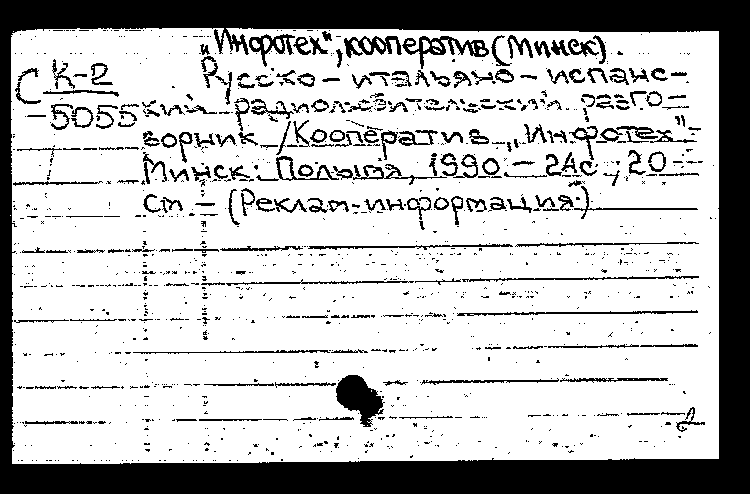 „Инфотех", кооператив (Минск).
С К-2 Русско-итальяно-испанс-
-5055 кий радиолюбительский разго-
ворник / Кооператив „Инфотех".-
Минск: Полымя, 1990. - 24с.; 20
см. - (Реклам. информация.)